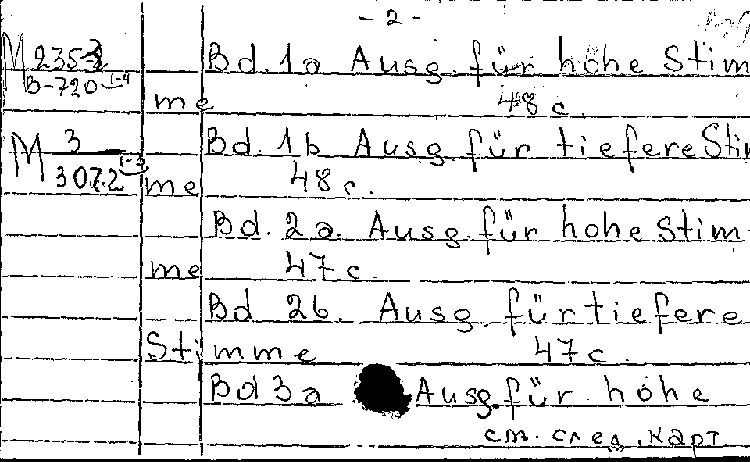 - 2 -
M 235-2 Bd. 1a Ausg. für hohe Stim
B-720 I-4
me 48 c.
M 3 Bd. 1b Ausg. für tiefere Stim
3072 1-3 me 48 c.
Bd. 2a. Ausg. für hohe Stim-
me 47 c.
Bd 2b. Ausg. für tiefere
Stimme 47 c.
Bd 3a Ausg. für hohe
см. след. карт